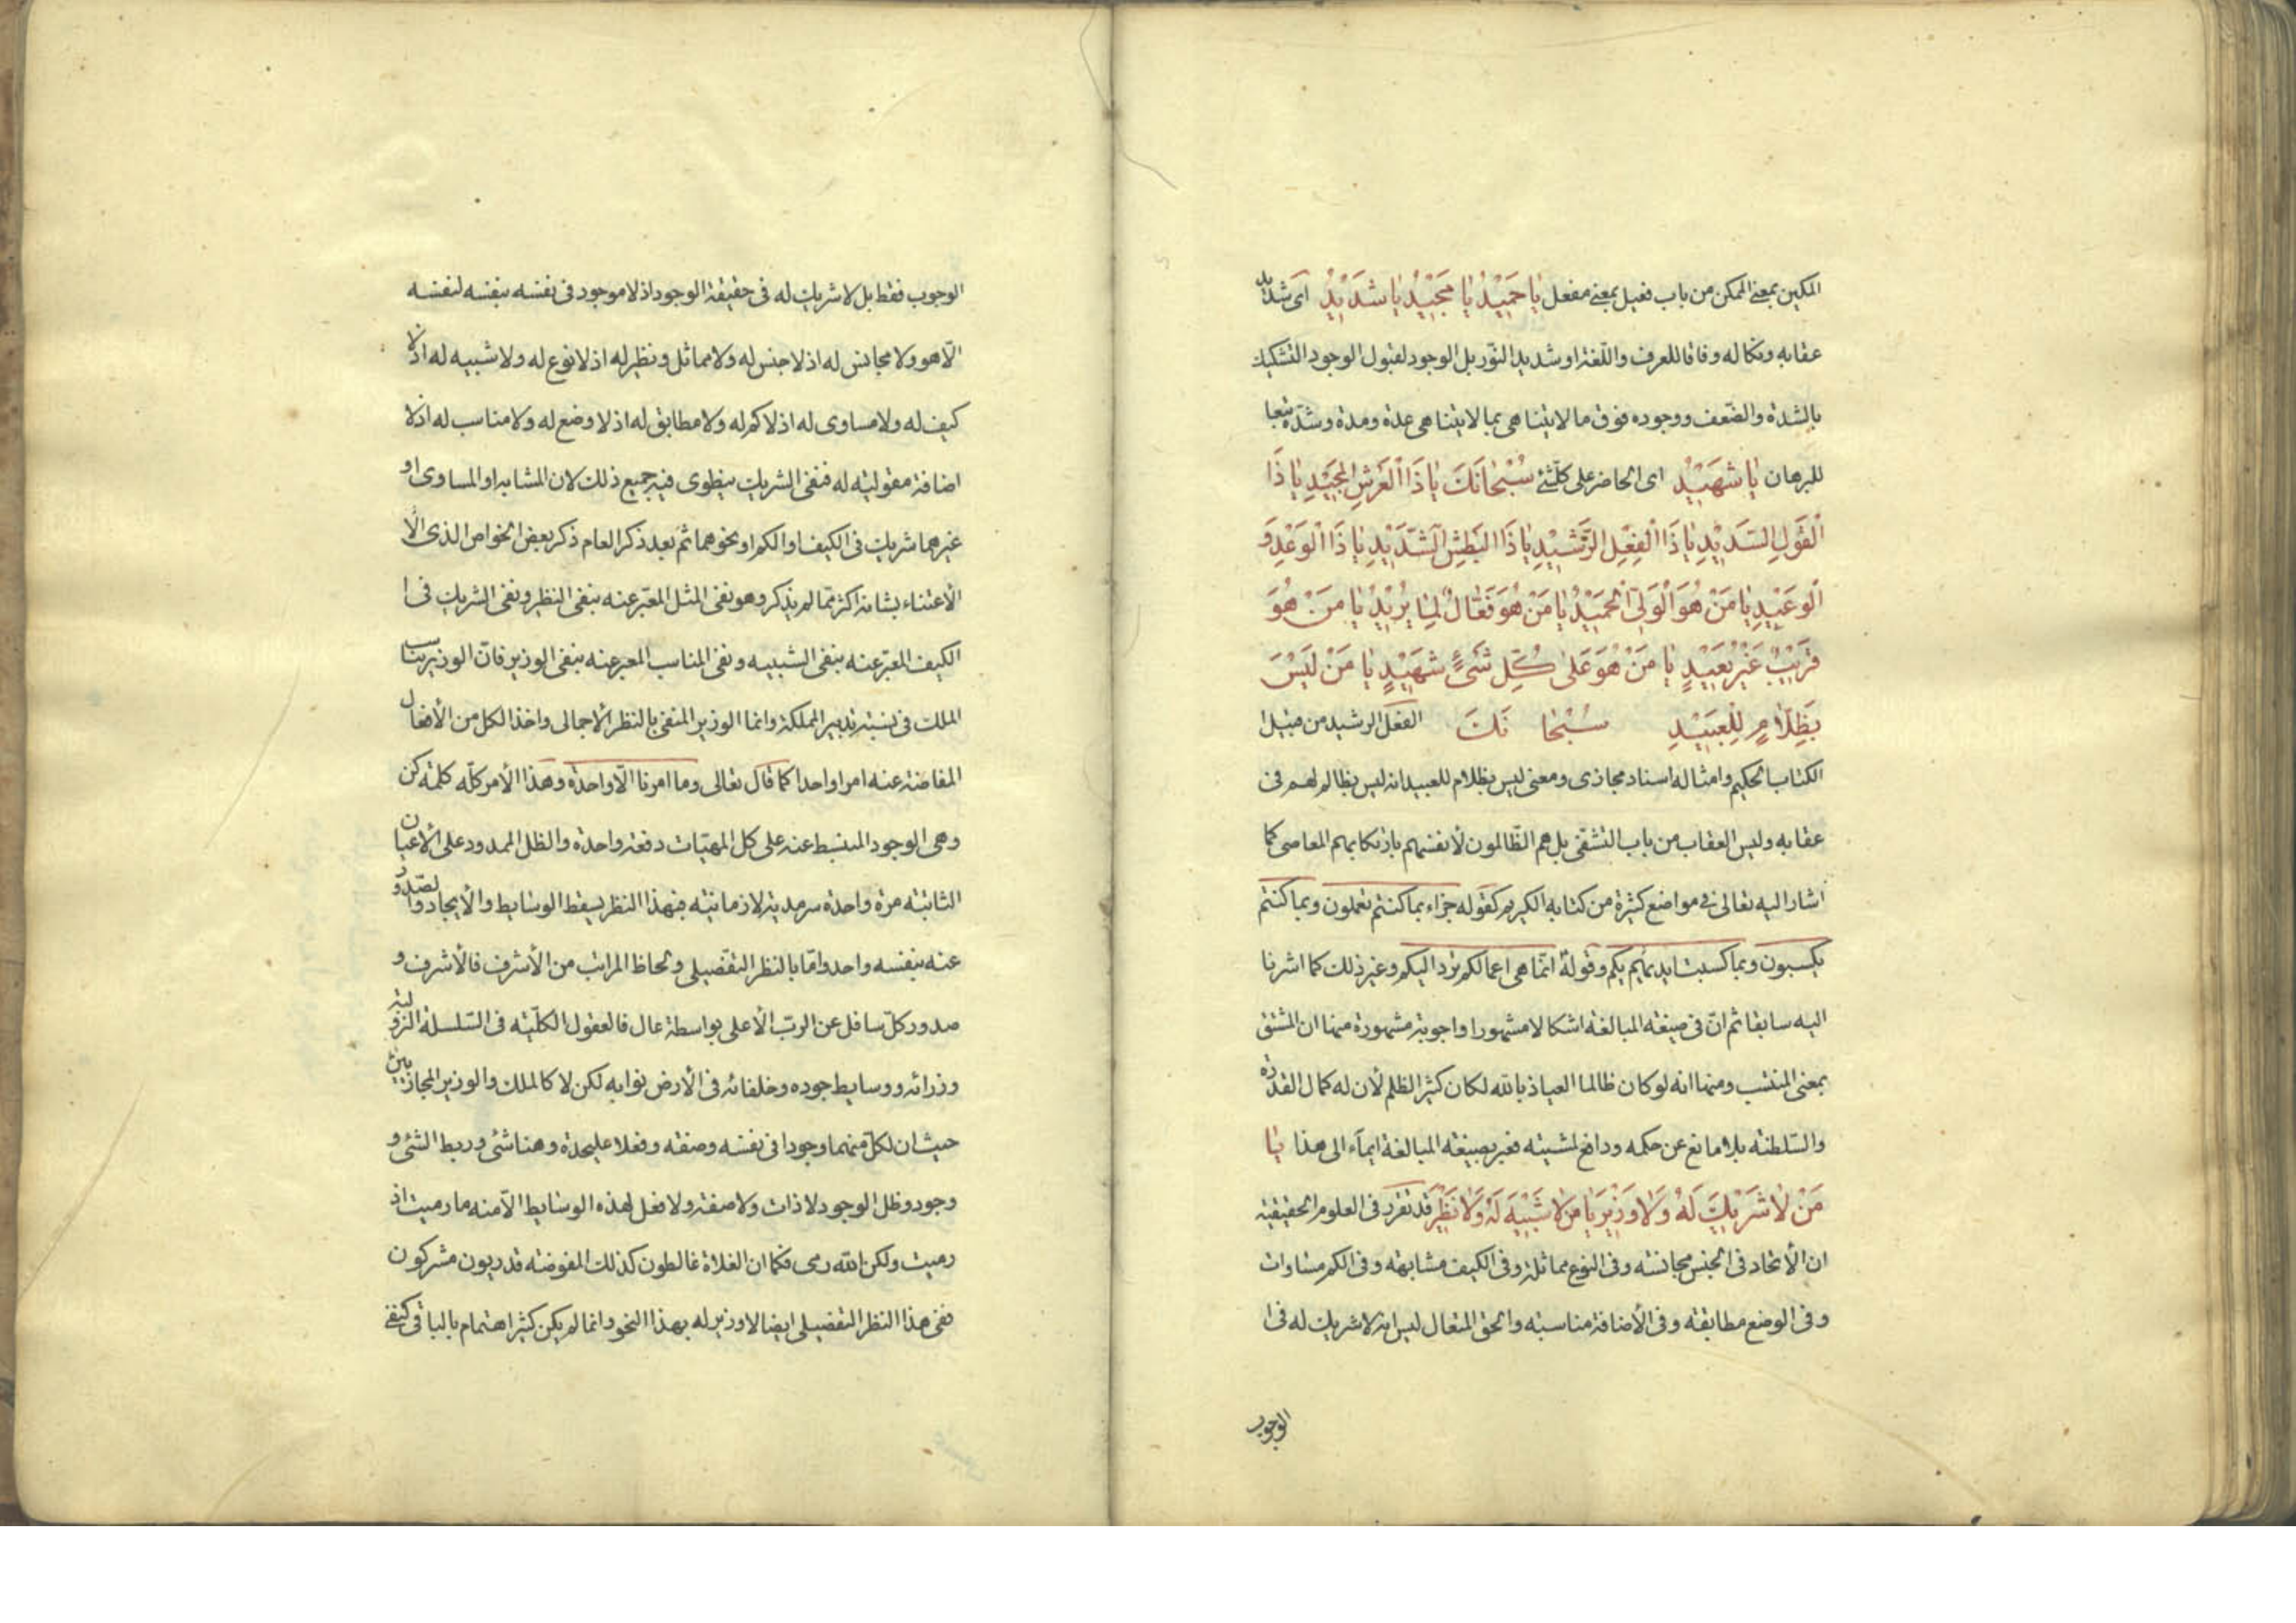 المكين بمعنى الممكن من باب فعيل بمعنى مفعل يَا حَمِيْدُ يَا مَجِيْدُ يَا شَدِيْدُ اى شديد
عقابه ونكاله وفاقا للعرف واللغة او شديد النور بل الوجود لقبول الوجود التشكيك
بالشدة والضعف ووجوده فوق ما لا يتناهى بما لا يتناهى عدة ومدة وشدة تبعا
للبرهان يَا شَهِيْدُ اى الحاضر على كل شئ سُبْحَانَكَ يَا ذَا الْعَرْشِ الْمَجِيْدِ يَا ذَا
الْقَوْلِ السَّدِيْدِ يَا ذَا الْفِعْلِ الرَّشِيْدِ يَا ذَا الْبَطْشِ الشَّدِيْدِ يَا ذَا الْوَعْدِ وَ
الْوَعِيْدِ يَا مَنْ هُوَ الْوَلِىُّ الْحَمِيْدُ يَا مَنْ هُوَ فَعَّالٌ لِمَا يُرِيْدُ يَا مَنْ هُوَ
قَرِيْبٌ غَيْرُ بَعِيْدٍ يَا مَنْ هُوَ عَلىٰ كُلِّ شَىْءٍ شَهِيْدٌ يَا مَنْ لَيْسَ
بِظَلَّامٍ لِلْعَبِيْدِ سُبْحَا نَكَ الفعل الرشيد من قبيل
الكتاب الحكيم وامثاله اسناد مجازى ومعنى ليس بظلام للعبيد انه ليس بظالم لهم فى
عقابه وليس العقاب من باب التشفى بل هم الظالمون لأنفسهم بارتكابهم المعاصى كما
اشار اليه تعالى فى مواضع كثيرة من كتابه الكريم كقوله جزاء بما كنتم تعملون وبما كنتم
تكسبون وبما كسبت ايديهم وقوله انما هى اعمالكم ترد اليكم وغير ذلك كما اشرنا
اليه سابقا ثم انّ فى صيغة المبالغة اشكالا مشهورا واجوبة مشهورة منها ان المشتق
بمعنى المنتسب ومنها انه لو كان ظالما العياذ بالله لكان كثير الظلم لأن له كمال القدرة
والسلطنة بلا مانع عن حكمه ودافع لمشيته فعبر بصيغة المبالغة ايماء الى هذا يَا
مَنْ لَا شَرِيْكَ لَهُ وَلَا وَزِيْرَ يَا مَنْ لَا شَبِيْهَ لَهُ وَلَا نَظِيْرَ قد تقرر فى العلوم الحقيقية
ان الأتحاد فى الجنس مجانسة وفى النوع مماثلة وفى الكيف مشابهة وفى الكم مساوات
وفى الوضع مطابقة وفى الأضافة مناسبة والحق المتعال ليس انه لا شريك له فى
الوجوب
الوجوب فقط بل لا شريك له فى حقيقة الوجود اذ لا موجود فى نفسه بنفسه لنفسه
الّا هو ولا مجانس له اذ لا جنس له ولا مماثل ونظير له اذ لا نوع له ولا شبيه له اذ لا
كيف له ولا مساوى له اذ لا كم له ولا مطابق له اذ لا وضع له ولا مناسب له اذ لا
اضافة مقولية له فنفى الشريك ينطوى فيه جميع ذلك لان المشابه او المساوى او
غيرهما شريك فى الكيف او الكم او نحوهما ثم بعد ذكر العام ذكر بعض الخواص الذى
الأعتناء بشانه اكثر مما لم يذكر وهو نفى المثل المعبر عنه بنفى النظير ونفى الشريك فى
الكيف المعبر عنه بنفى الشبيه ونفى المناسب المعبر عنه بنفى الوزير فان الوزير يناسب
الملك فى نسبة تدبير المملكة وانما الوزير المنفى بالنظر الأجمالى واخذ الكل من الأفعال
المفاضة عنه امرا واحدا كما قال تعالى وما امرنا الّا واحدة وهذا الأمر كله كلمة كن
وهى الوجود المنبسط عنه على كل المهيات دفعة واحدة والظل الممدود على الأعيان
الثابتة مرة واحدة سرمدية لا زمانية فبهذا النظر يسقط الوسايط والأيجاد والصدور
عنه بنفسه واحد وامّا بالنظر التفصيلى ولحاظ المراتب من الأشرف فالأشرف و
صدور كل سافل عن الرب الأعلى بواسطة عال فالعقول الكلية فى السلسلة النزولية
وزرائه ووسايط جوده وخلفائه فى الأرض نوابه لكن لا كالملك والوزير المجازيين
حيث ان لكل منهما وجودا فى نفسه وصفة وفعلا عليحدة وهنا شئ وربط الشئ و
وجود وظل الوجود لا ذات ولا صفة ولا فعل لهذه الوسايط الّا منه ما رميت اذ
رميت ولكن الله رمى فكما ان الغلاة غالطون كذلك المفوضة قدريون مشركون
ففى هذا النظر التفصيلى ايضا لا وزير له بهذا النحو وانما لم يكن كثير اهتمام بالباقى كنفى